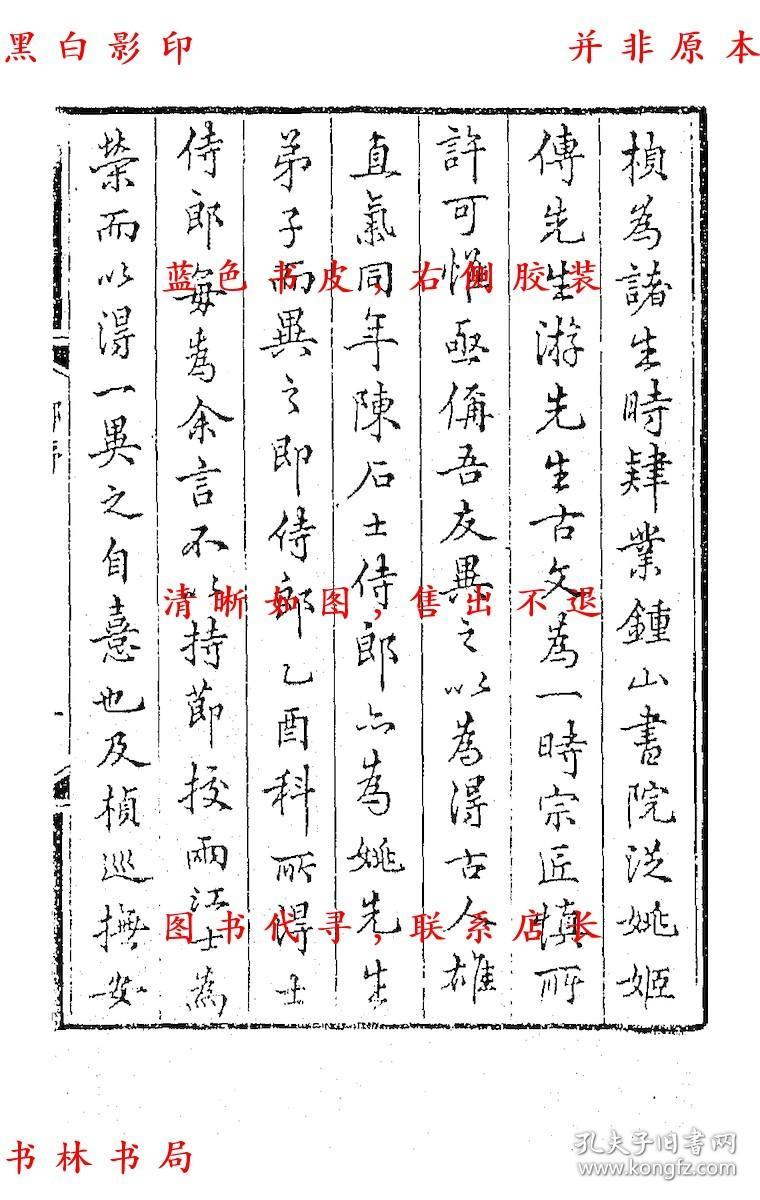 黑白影印
并非原本
楨為諸生時肄業鍾山書院從姚姬
傳先生游先生古文為一時宗匠慎所
許可惟亟偁吾友異之以為得古人雄
直氣同年陳石士侍郎亦為姚先生
弟子而異之即侍郎乙酉科所得士
侍郎每為余言不以持節挍兩江士為
榮而以得一異之自憙也及楨巡撫安
蓝色书皮,右侧胶装
清晰如图,售出不退
图书代寻,联系店长
书林书局
孔夫子旧书网
www.kongfz.com